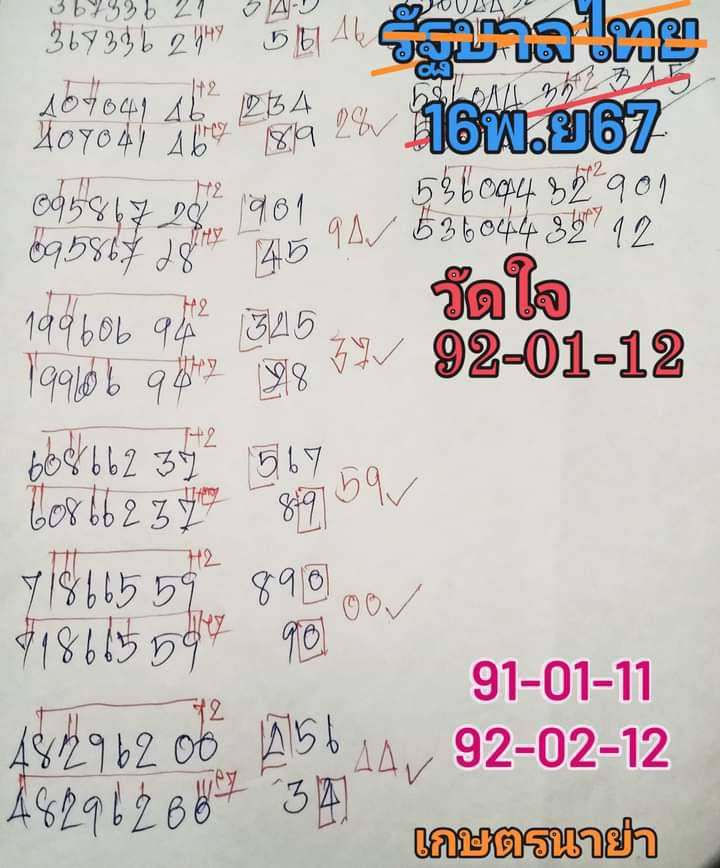 367336 21 +7 56 16
รัฐบาลไทย
16พ.ย67
407041 16 +2 234
407041 16 +7 89 28 ✓
095867 28 +2 901
095867 28 +7 45 94 ✓
536044 32 +2 901
536044 32 +7 12
วัดใจ
92-01-12
199606 94 +2 345
199606 94 +7 28 37 ✓
608662 37 +2 567
608662 37 +7 89 59 ✓
718665 59 +2 890
718665 59 +7 90 00 ✓
482962 00 +2 456
482962 00 +7 34 44 ✓
91-01-11
92-02-12
เกษตรนาย่า